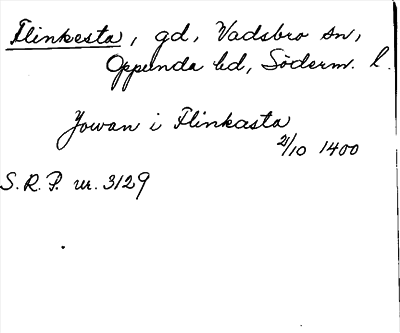 Flinkesta, gd, Vadsbro sn,
Oppunda hd, Söderm. l.
Jowan i Flinkasta
21/10 1400
S.R.P. nr. 3129